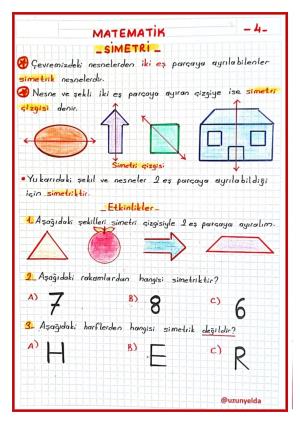 MATEMATİK
- 4 -
SİMETRİ
Çevremizdeki nesnelerden iki eş parçaya ayrılabilenler
simetrik nesnelerdir.
Nesne ve şekli iki eş parçaya ayıran çizgiye ise simetri
çizgisi denir.
Simetri çizgisi
• Yukarıdaki şekil ve nesneler 2 eş parçaya ayrılabildiği
için simetriktir.
- Etkinlikler -
1. Aşağıdaki şekilleri simetri çizgisiyle 2 eş parçaya ayıralım.
2. Aşağıdaki rakamlardan hangisi simetriktir?
A) 7 B) 8 C) 6
3. Aşağıdaki harflerden hangisi simetrik değildir?
A) H B) E C) R
@uzunyelda